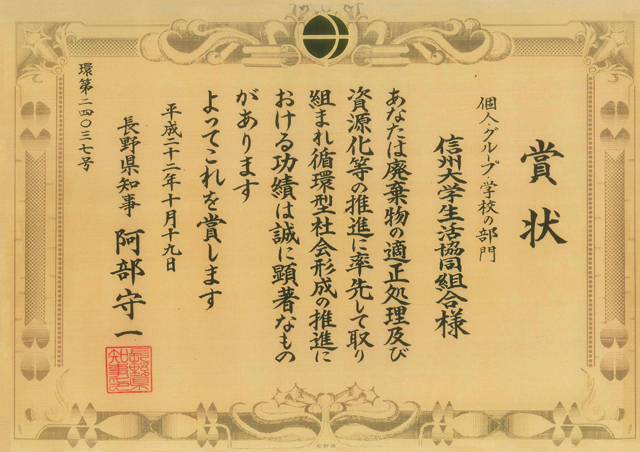 賞状
個人・グループ、学校の部門
信州大学生活協同組合様
あなたは廃棄物の適正処理及び
資源化等の推進に率先して取り
組まれ循環型社会形成の推進に
おける功績は誠に顕著なもの
があります
よってこれを賞します
平成二十二年十月十九日
長野県知事 阿部守一
環第二四〇三七号
長野県知事之印